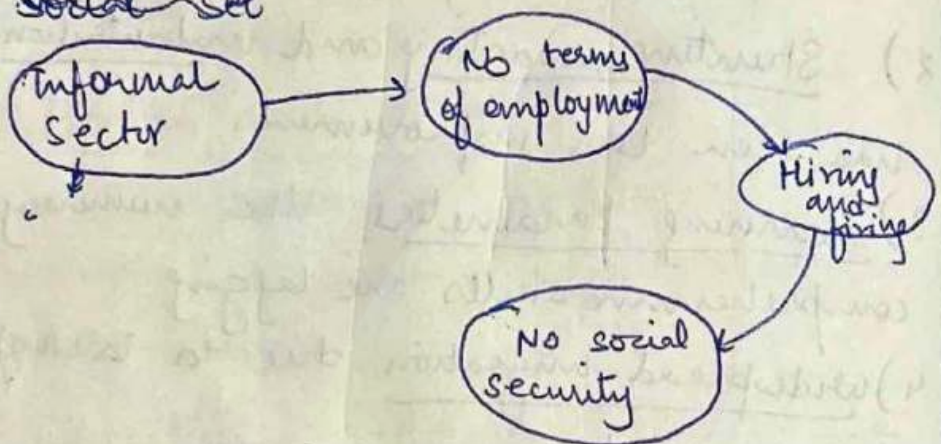 Social Sec
Informal
Sector
No terms
of employment
Hiring
and
firing
No social
security